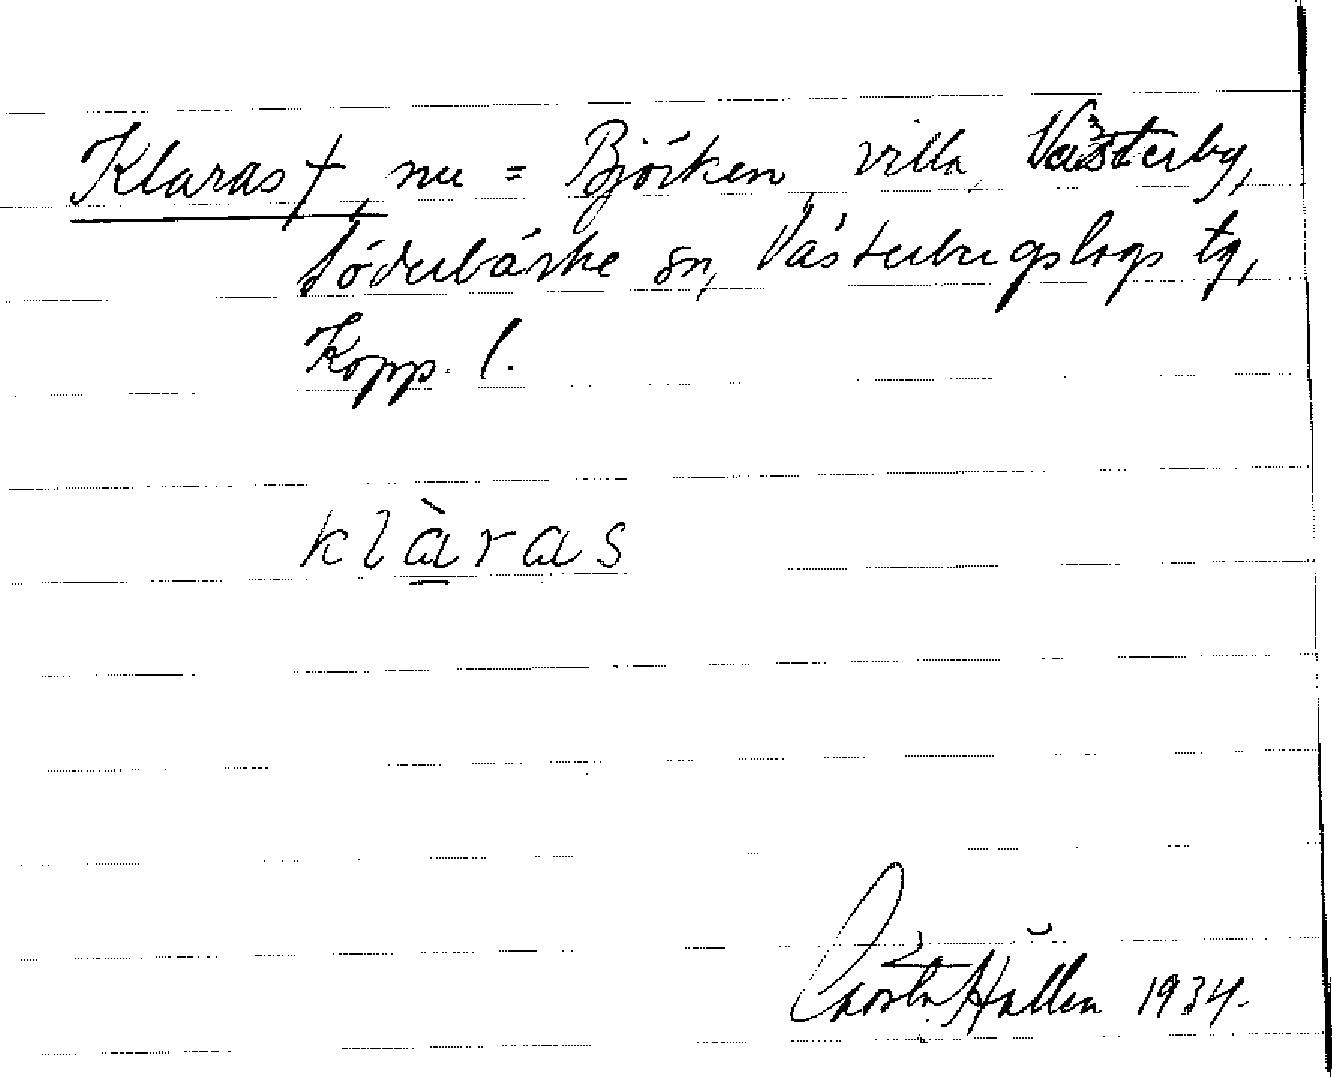 Klaras †, nu = Björken, villa, Västerby,
Söderbärke sn, Västerbergslags tg,
Kopp. l.
klàras
Gösta Hallén 1934.